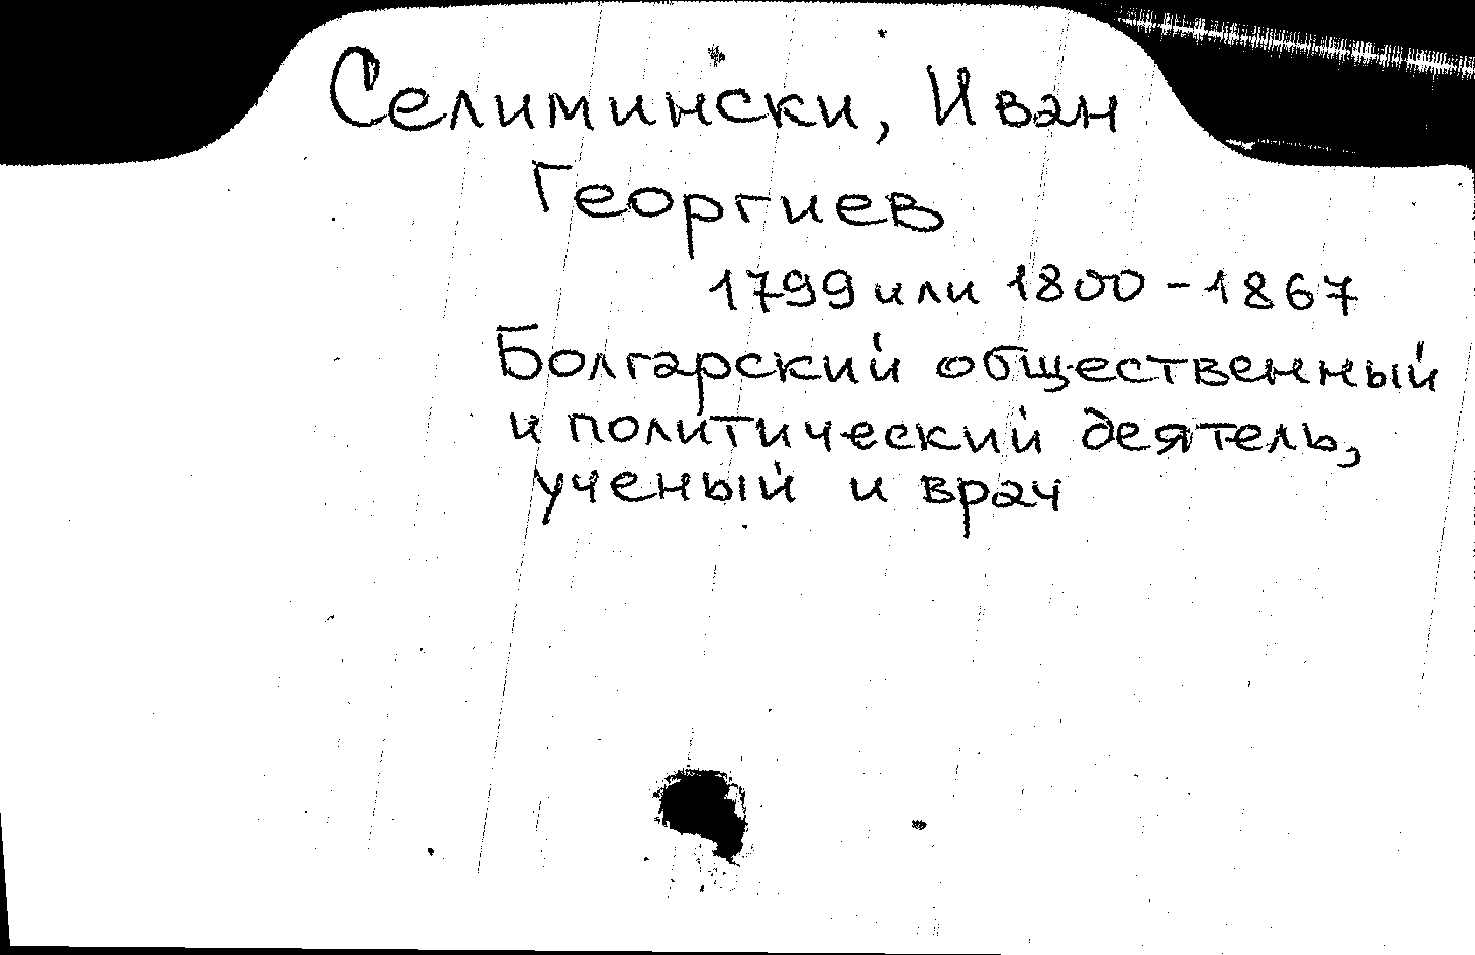 Селимински, Иван
Георгиев
1799 или 1800 - 1867
Болгарский общественный
и политический деятель,
ученый и врач